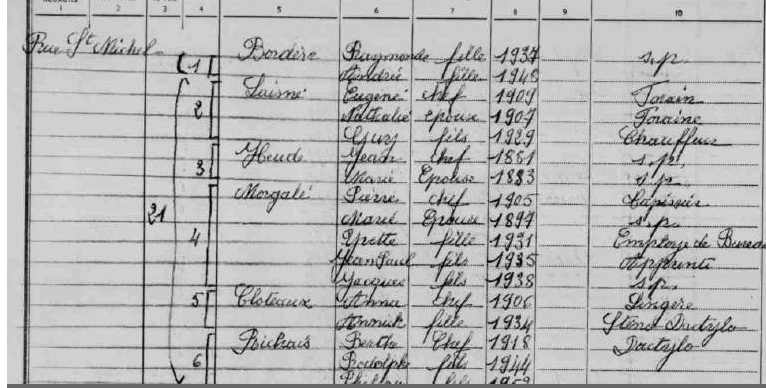 1 2 3 4 5 6 7 8 9 10
Rue St Michel 1 Bordère Raymonde fille 1937 s.p.
Andrée fille 1940
2 Laisné Eugène chef 1909 Forain
Nathalie épouse 1907 Foraine
Guy fils 1929 Chauffeur
3 Heude Jean chef 1881 s.p.
Marie Epouse 1883 s.p.
21 4 Morgalé Pierre chef 1905 Tapissier
Marie Epouse 1897 s.p.
Yvette fille 1931 Employé de Bureau
Jean Paul fils 1935 Apprenti
Jacques fils 1938 s.p.
5 Cloteaux Anna chef 1906 Lingère
Annick fille 1934 Sténo Dactylo
6 Richais Berthe Chef 1918 Dactylo
Rodolphe fils 1944